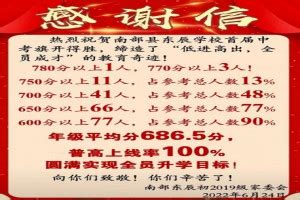 感谢信
热烈祝贺南部县东辰学校首届中
考旗开得胜，缔造了“低进高出，全
员成才”的教育奇迹！
780分以上1人，770分以上3人！
750分以上11人，占参考总人数13%
700分以上41人，占参考总人数48%
650分以上66人，占参考总人数77%
600分以上77人，占参考总人数90%
年级平均分686.5分，
普高上线率100%
圆满实现全员升学目标！
向你们致敬！你们辛苦了！
南部东辰初2019级家委会
2022年6月24日